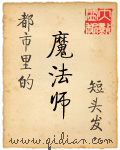 都市里的
魔法师
短头发
www.qidian.com